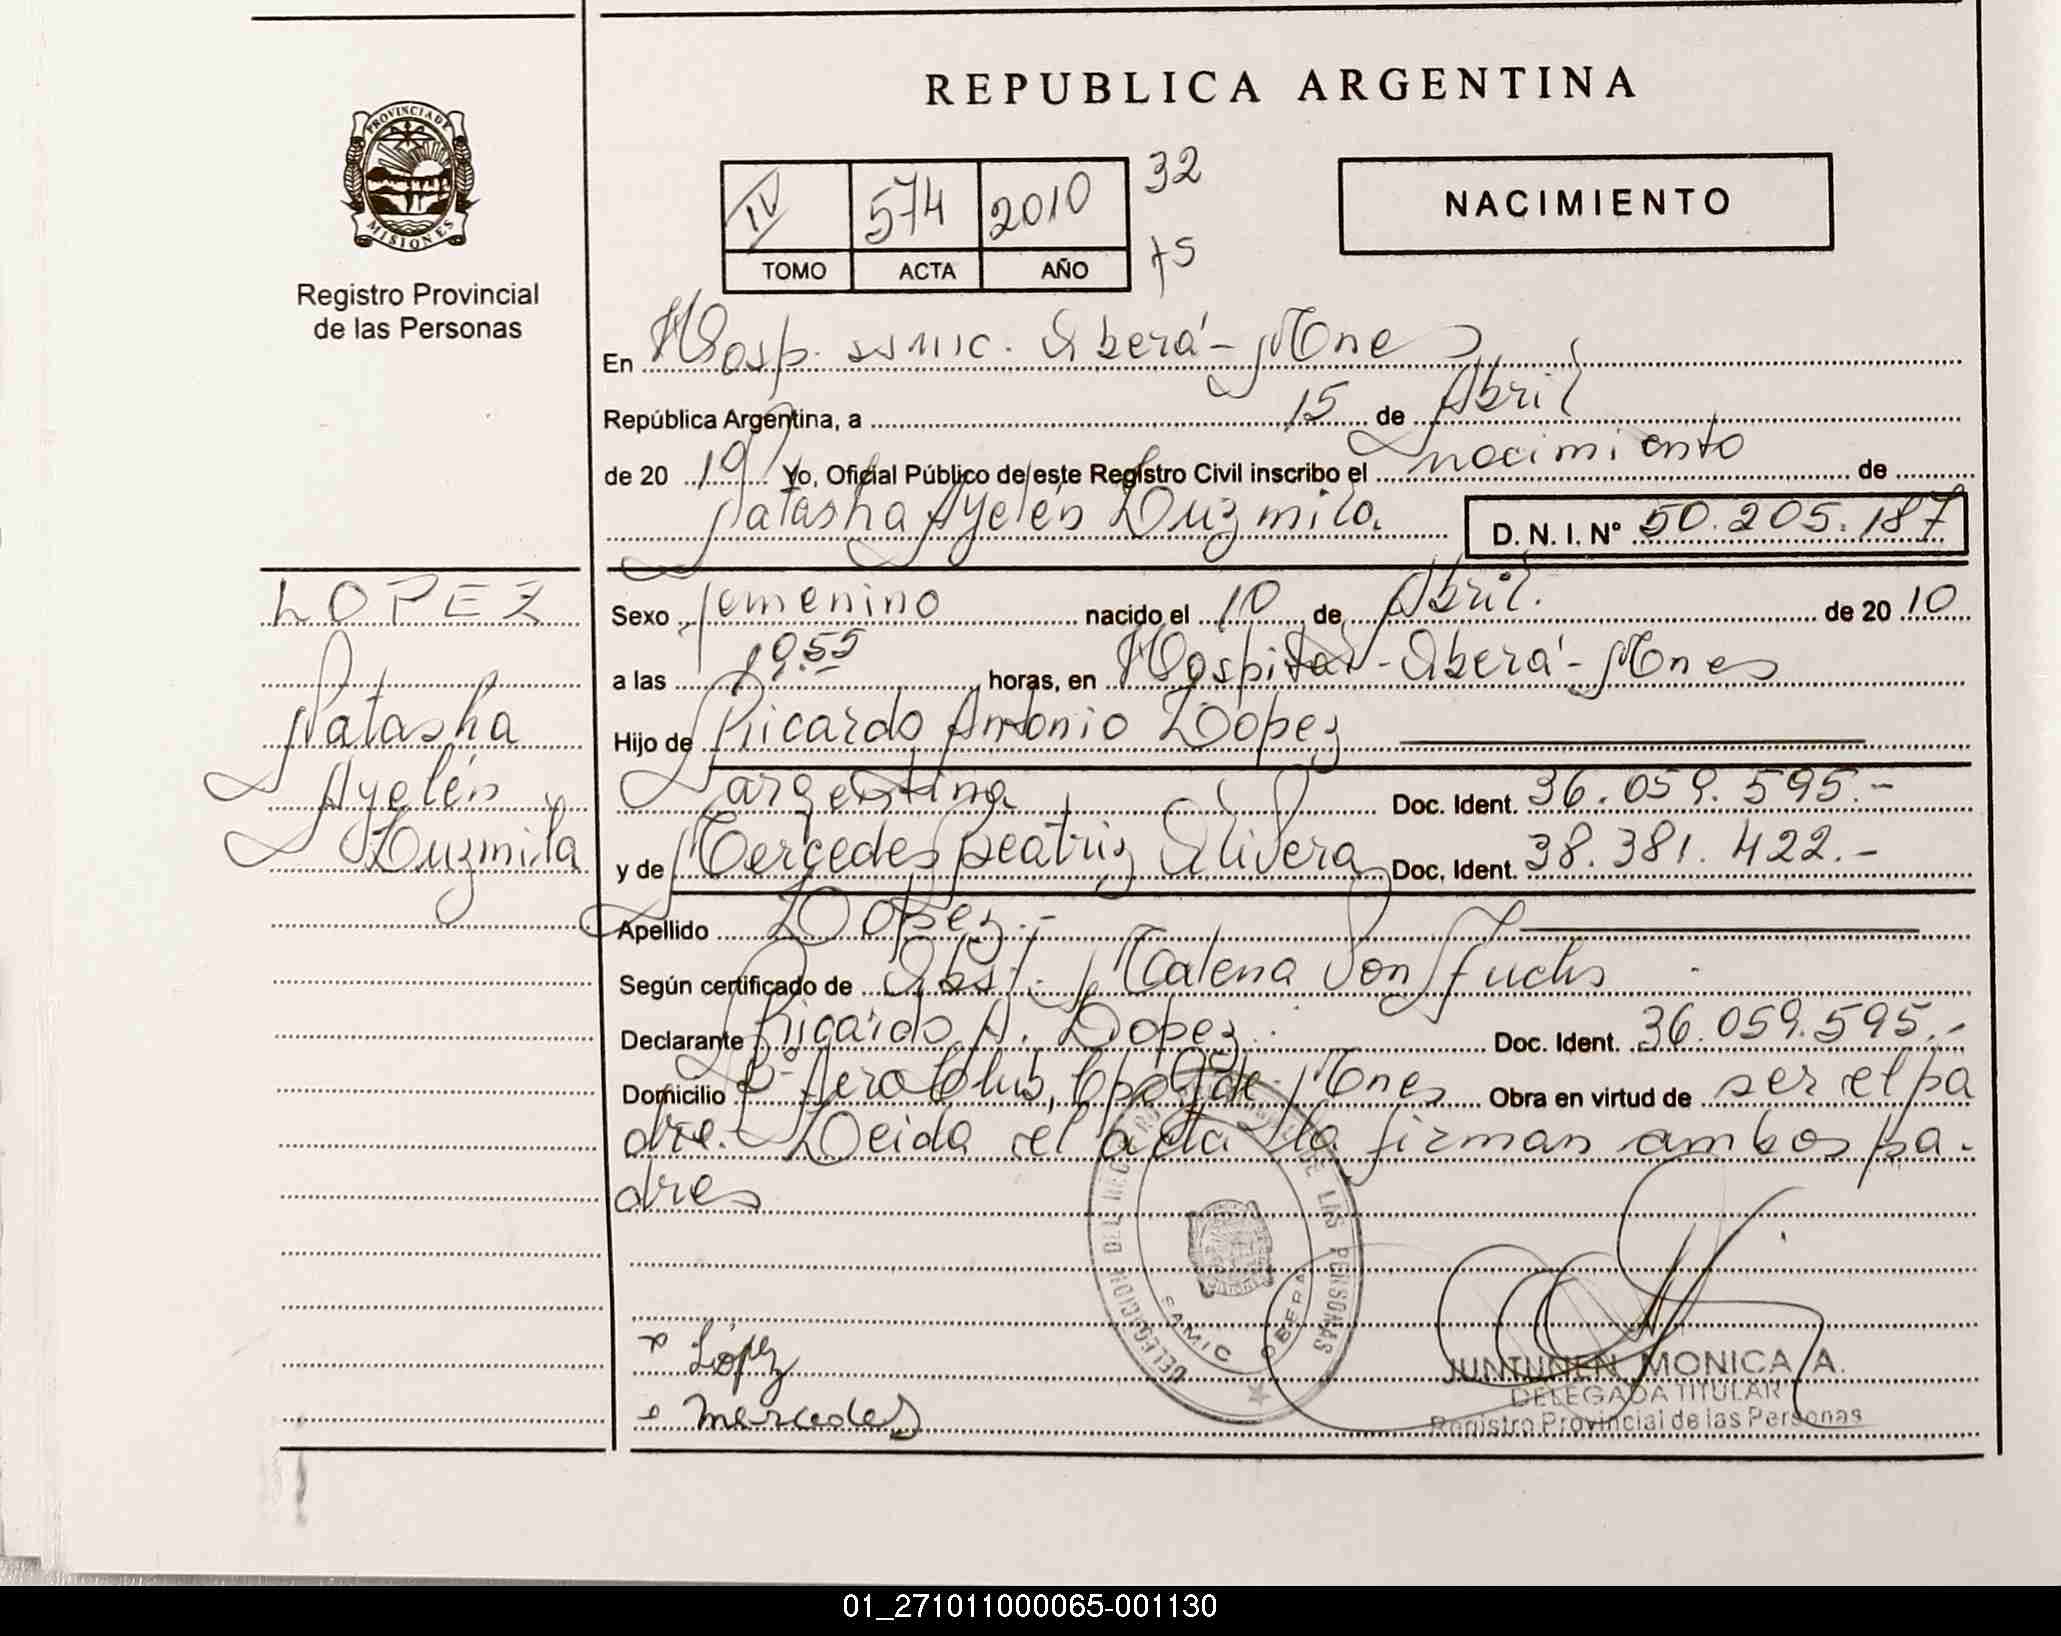 REPUBLICA ARGENTINA
PROVINCIA DE
MISIONES
Registro Provincial
de las Personas
IV 574 2010 32
TOMO ACTA AÑO 75
NACIMIENTO
En Hosp. ssmic. Oberá - Mnes
República Argentina, a 15 de Abril
de 20 10 Yo, Oficial Público de este Registro Civil inscribo el nacimiento de
Natasha Ayelén Luzmila D. N. I. Nº 50.205.187
LOPEZ
Natasha
Ayelén
Luzmila
Sexo femenino nacido el 10 de Abril. de 20 10
a las 19.55 horas, en Hospital - Oberá - Mnes
Hijo de Ricardo Antonio Lopez
argentina Doc. Ident. 36.059.595.-
y de Mercedes Beatriz Olivera Doc. Ident. 38.381.422.-
Apellido Lopez.-
Según certificado de Obst. Malena Von Fuchs
Declarante Ricardo A. Lopez. Doc. Ident. 36.059.595.-
Domicilio Bº Aero Club, Mnes Obra en virtud de ser el pa
dre. Leida el acta la firman ambos pa-
dres
DELEGACION DEL REGISTRO PROVINCIAL DE LAS PERSONAS
SAMIC OBERA
López
Mercedes
JUNTUNEN, MONICA A.
DELEGADA TITULAR
Registro Provincial de las Personas
01_271011000065-001130